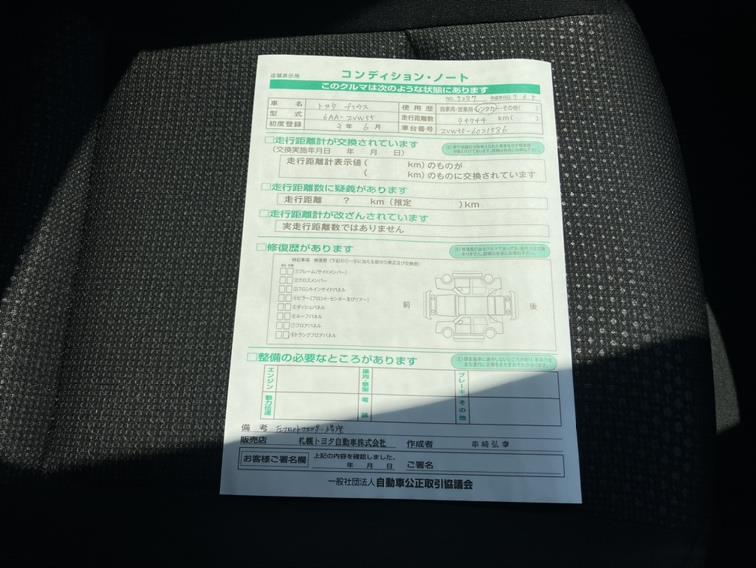 店頭表示用
コンディション・ノート
このクルマは次のような状態にあります
車名 トヨタ プリウス 使用歴 自家用・営業用・レンタカー・その他( )
型式 6AA-ZVW55 走行距離数 km( )
初度登録 2年6月 車台番号 ZVW55-6021586
□走行距離計が交換されています
(交換実施年月日 年 月 日)
走行距離計表示値( km)のものが
( km)のものに交換されています
□走行距離数に疑義があります
走行距離 ? km(推定 )km
□走行距離計が改ざんされています
実走行距離数ではありません
□修復歴があります
①フレーム(サイドメンバー)
②クロスメンバー
③フロントインサイドパネル
④ピラー(フロント・センター及びリアー)
⑤ダッシュパネル
⑥ルーフパネル
⑦フロアパネル
⑧トランクフロアパネル
前 後
□整備の必要なところがあります
エンジン ブレーキ
動力伝達 電装 その他
備考
販売店 札幌トヨタ自動車株式会社 作成者 串崎弘幸
お客様ご署名欄 上記の内容を確認しました。
年 月 日 ご署名
一般社団法人 自動車公正取引協議会